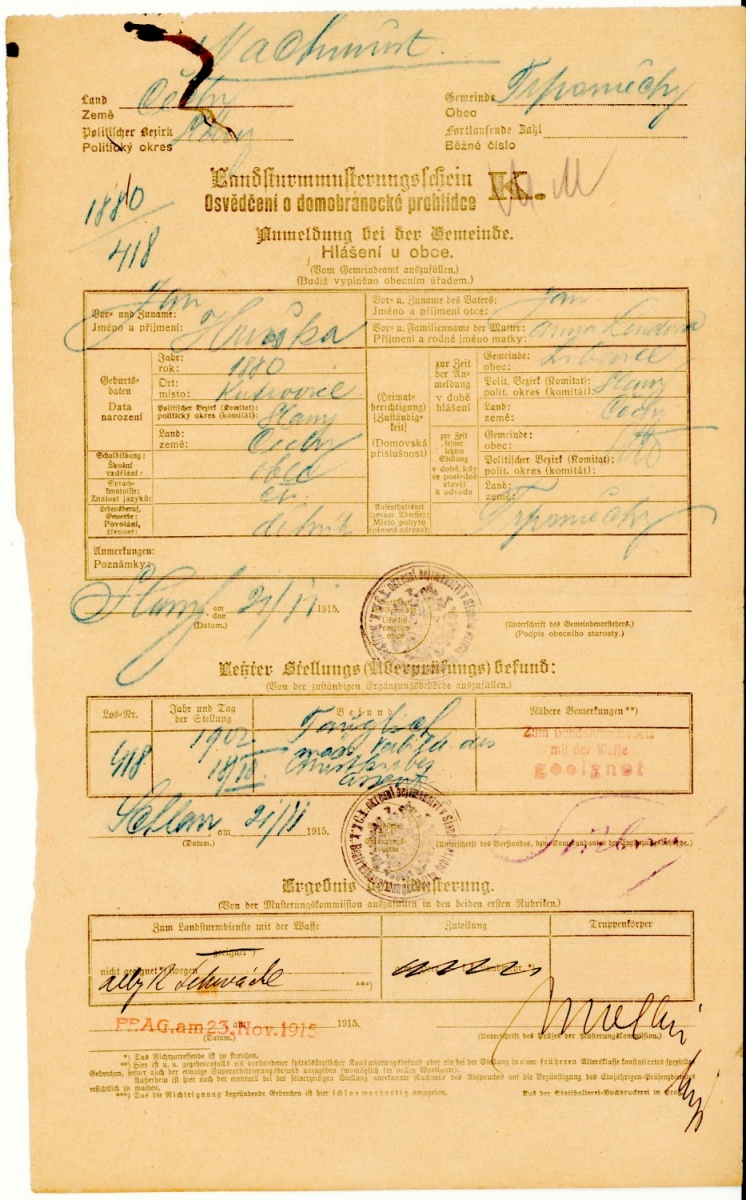 Nachmust.
Land Čechy
Země
Gemeinde Trpoměchy
Obec
Politischer Bezirk Slaný
Politický okres
Fortlaufende Zahl
Běžné číslo
Landsturmmusterungsschein K.
Osvědčení o domobránecké prohlídce
1880
418
Anmeldung bei der Gemeinde.
Hlášení u obce.
(Vom Gemeindeamt auszufüllen.)
(Budiž vyplněno obecním úřadem.)
Vor- und Zuname: Jan
Jméno a příjmení: Hruška
Vor- u. Zuname des Vaters: Jan
Jméno a příjmení otce:
Vor- u. Familienname der Mutter: Anna
Příjmení a rodné jméno matky:
Geburtsdaten
Data narození
Jahr: 1880
rok:
Ort:
místo:
Politischer Bezirk (Komitat): Slaný
politický okres (komitát):
Land: Čechy
země:
Schulbildung: obec
Školní vzdělání:
Sprachkenntnisse:
Znalost jazyků:
Lebensberuf, Gewerbe: dělník
Povolání, živnost:
(Heimatberechtigung)
(Zuständigkeit)
(Domovská příslušnost)
zur Zeit der Anmeldung
v době hlášení
Gemeinde:
obec:
Polit. Bezirk (Komitat): Slaný
polit. okres (komitát):
Land: Čechy
země:
zur Zeit seiner letzten Stellung
v době, kdy se posledně stavěl k odvodu
Gemeinde:
obec:
Politischer Bezirk (Komitat):
polit. okres (komitát):
Land:
země:
Aufenthaltsort (genaue Adresse): Trpoměchy
Místo pobytu (přesná adresa):
Anmerkungen:
Poznámky:
Slaný am 21/11 1915.
dne
(Datum.)
(Unterschrift des Gemeindevorstehers.)
(Podpis obecního starosty.)
Letzter Stellungs(Überprüfungs)befund:
(Von der zuständigen Ergänzungsbehörde auszufüllen.)
Los-Nr.
Jahr und Tag der Stellung
Befund
Nähere Bemerkungen**)
418
1902
Tauglich
Zum Landsturmdienste
mit der Waffe
geeignet
Schlan am 21/11 1915.
(Datum.)
(Unterschrift des Vorstandes, bzw. Kommandanten der Ergänzungsbehörde.)
Ergebnis der Musterung.
(Von der Musterungskommission auszufüllen in den beiden ersten Rubriken.)
Zum Landsturmdienste mit der Waffe
Zuteilung
Truppenkörper
geeignet*)
nicht geeignet*) wegen
allg. K. Schwäche ***)
PRAG, am 23. Nov. 1915 1915.
(Datum.)
(Unterschrift des Präses der Musterungskommission.)
*) Das Nichtzutreffende ist zu streichen.
**) Hier ist u. a. gegebenenfalls ein vorhandener spitalsärztlicher Konstatierungsbefund oder ein bei der Stellung in einer früheren Altersklasse konstatiertes spezielles
Gebrechen, ferner auch der etwaige Superarbitrierungsbefund anzugeben (womöglich im vollen Wortlaute).
Außerdem ist hier auch der eventuell bei der seinerzeitigen Stellung anerkannte Nachweis des Anspruches auf die Begünstigung des Einjährigen-Präsenzdienstes
ersichtlich zu machen.
***) Das die Nichteignung begründende Gebrechen ist hier schlagwortartig anzugeben.
Aus der Statthalterei-Buchdruckerei in Prag.